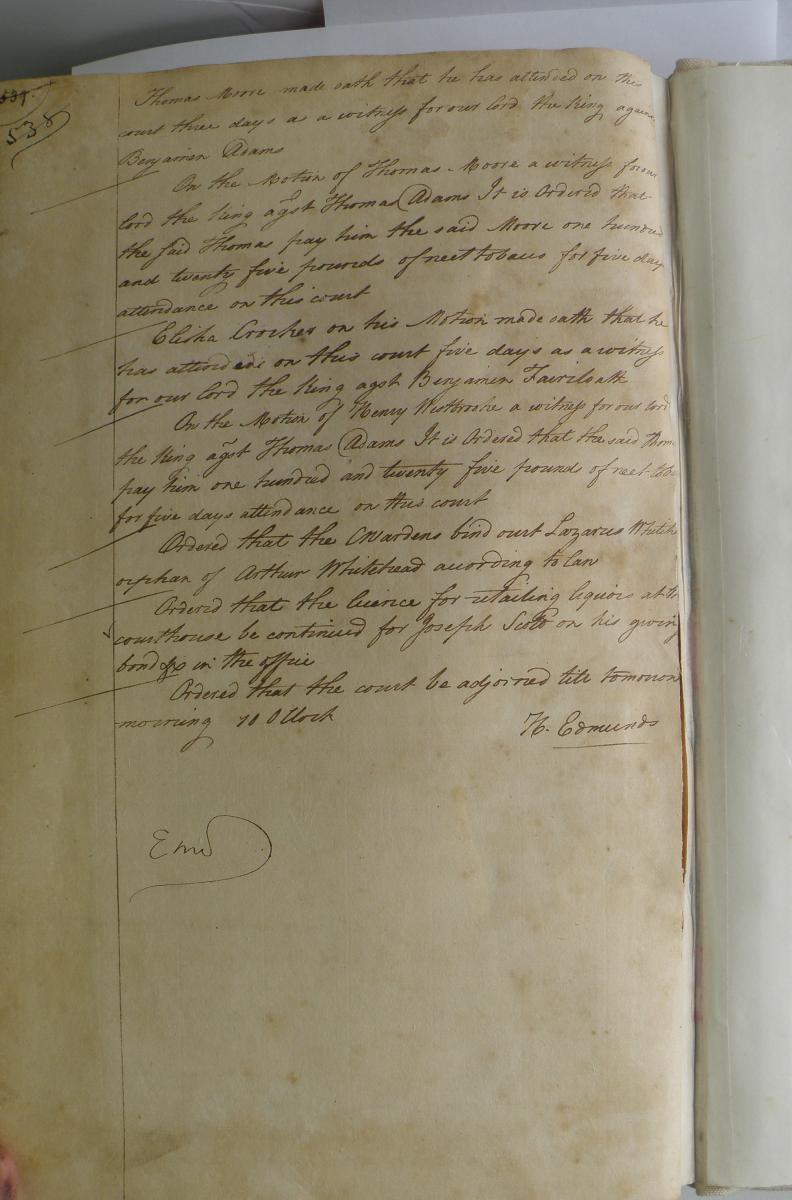 537.
538
Thomas Moore made oath that he has attended on this
court three days as a witness for our lord the King against
Benjamin Adams
On the Motion of Thomas Moore a witness for our
lord the King agst Thomas Adams It is Ordered that
the said Thomas pay him the said Moore one hundred
and twenty five pounds of neet tobacco for five days
attendance on this court
Elisha Crocker on his Motion made oath that he
has attended on this court five days as a witness
for our lord the King agst Benjamin Faircloath
On the Motion of Henry Westbroke a witness for our lord
the King agst Thomas Adams It is Ordered that the said Thomas
pay him one hundred and twenty five pounds of neet tobo
for five days attendance on this court
Ordered that the CWardens bind out Lazarus Whitehe
orphan of Arthur Whitehead according to Law
Ordered that the licence for retailing liquors at the
courthouse be continued for Joseph Scott on his giving
bond &c in the office
Ordered that the court be adjoirned till tomorrow
morning 10 OClock
H. Edmunds
End